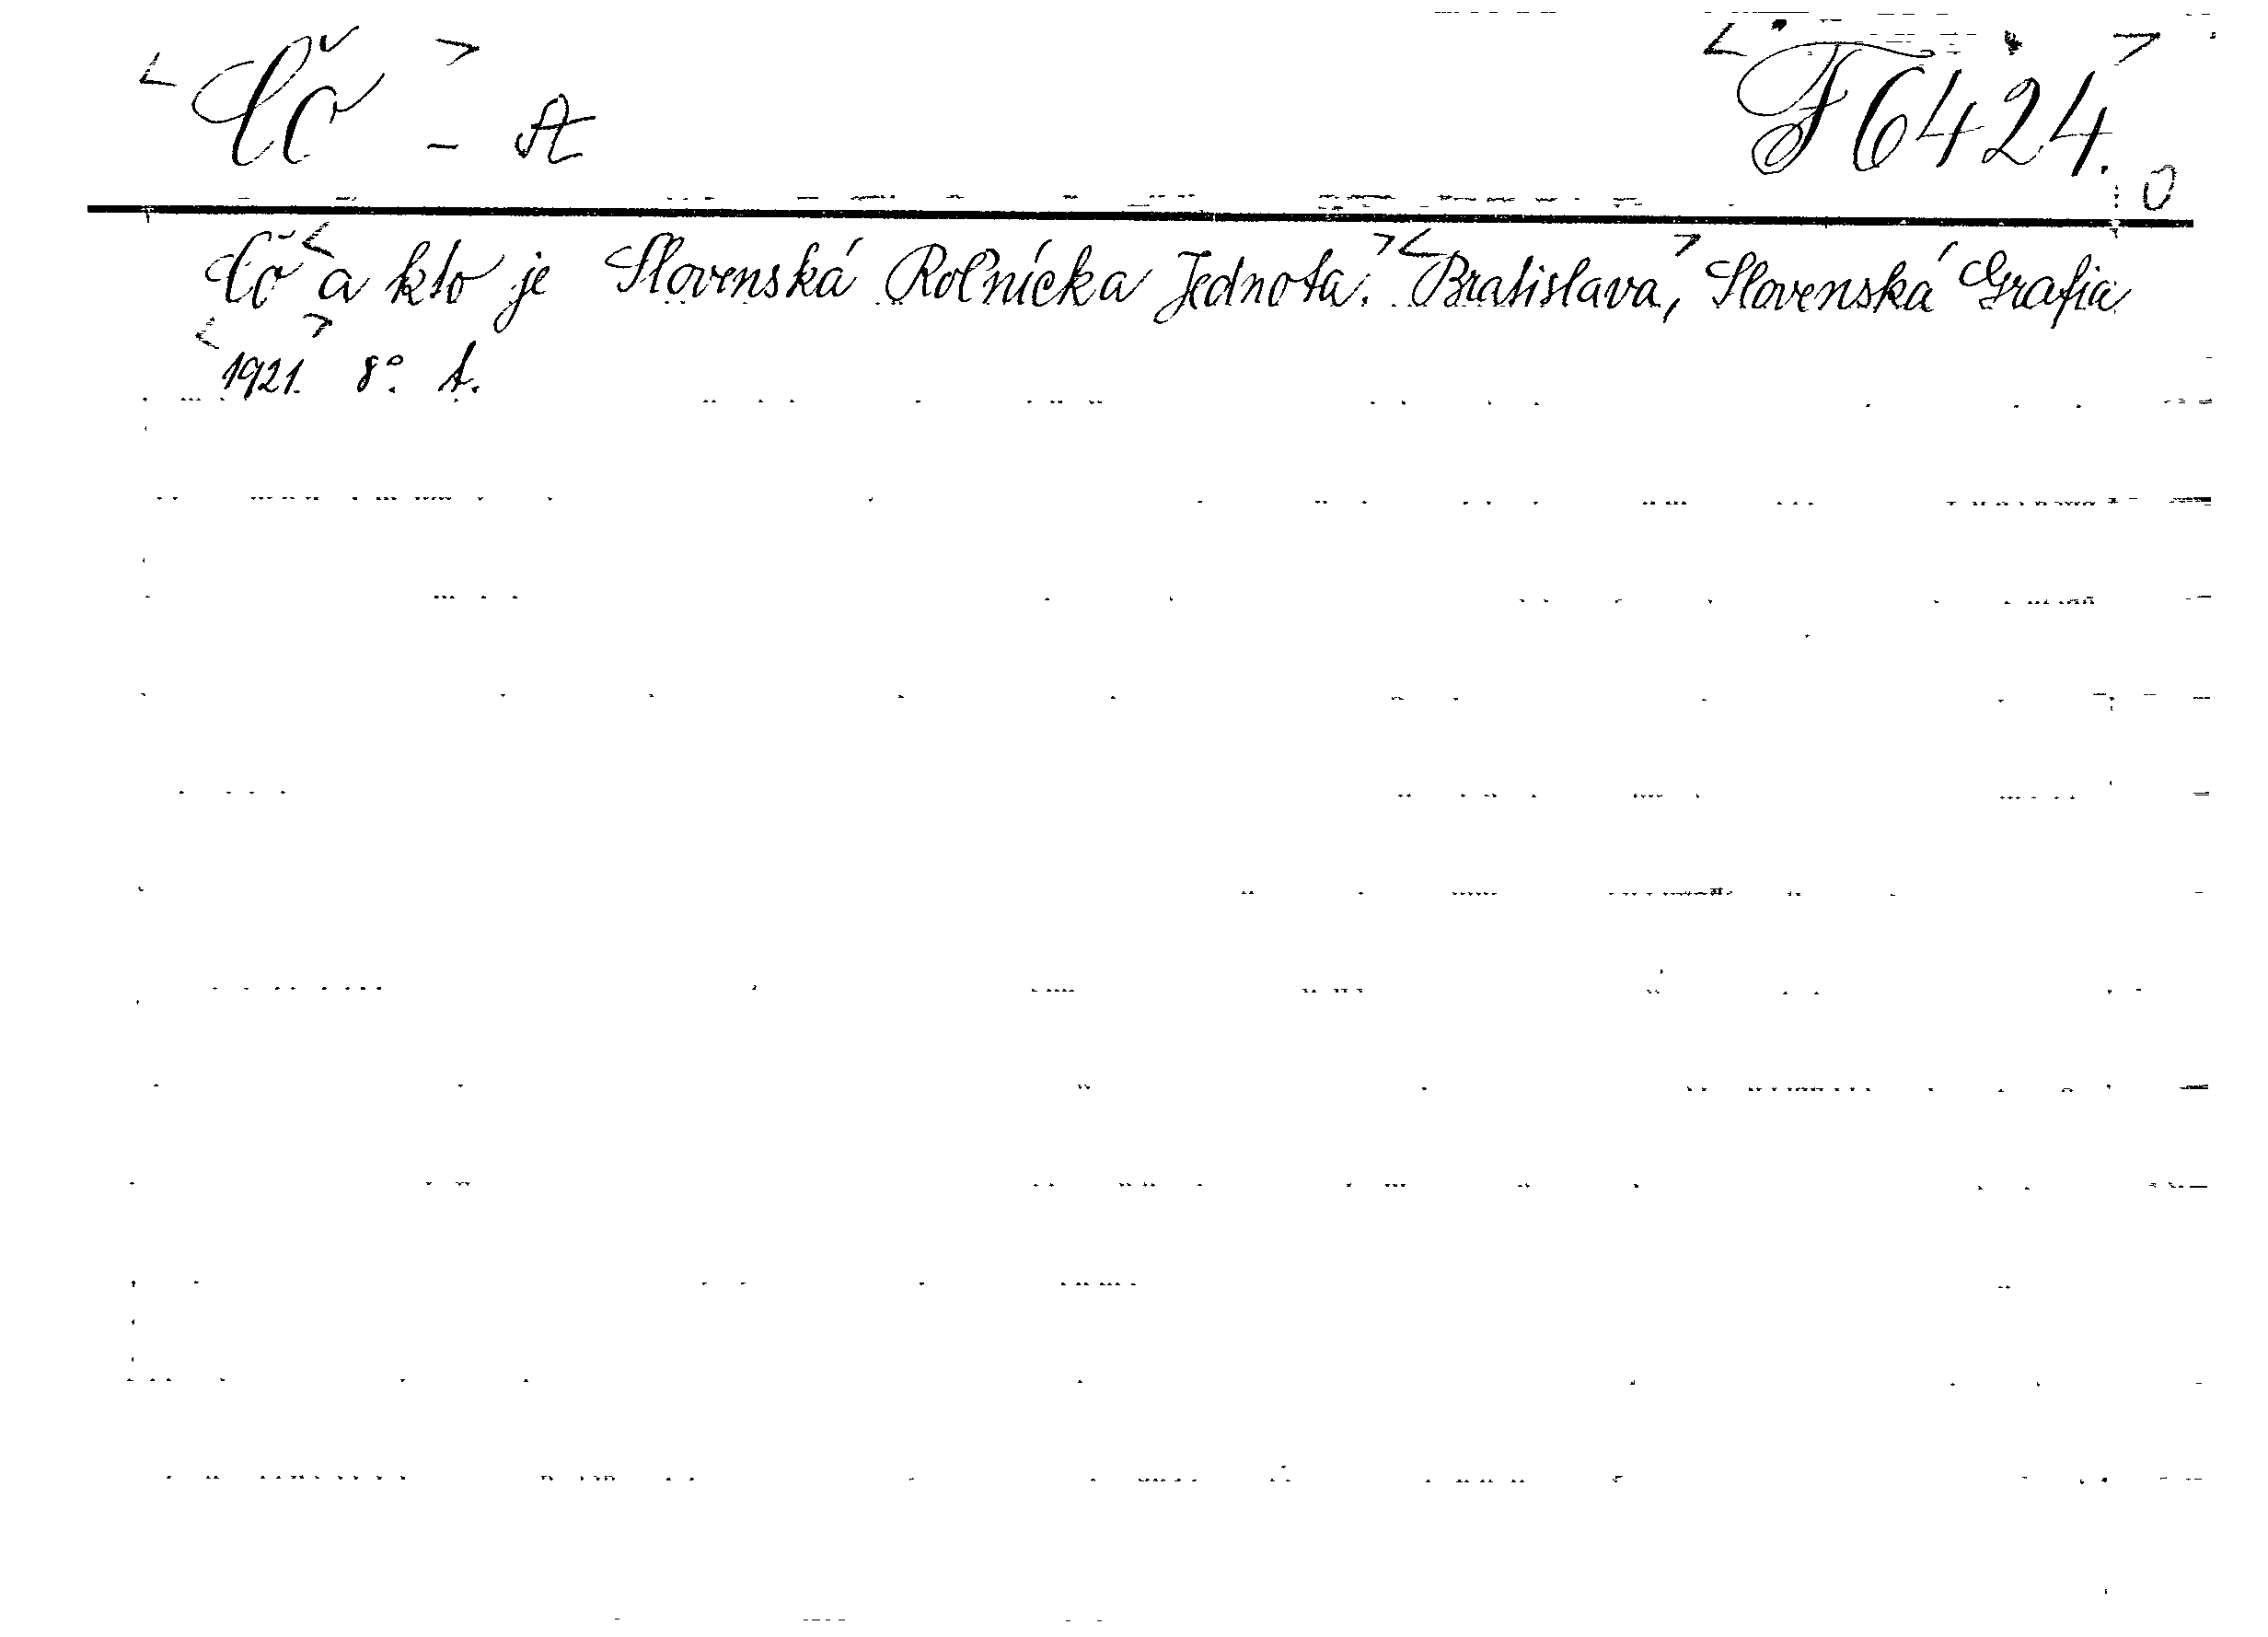 <Čo> - A <F 6424.> 0
Čo <a kto je Slovenská Roľnícka Jednota.> <Bratislava,> Slovenská Grafia
<1921.> 8°.